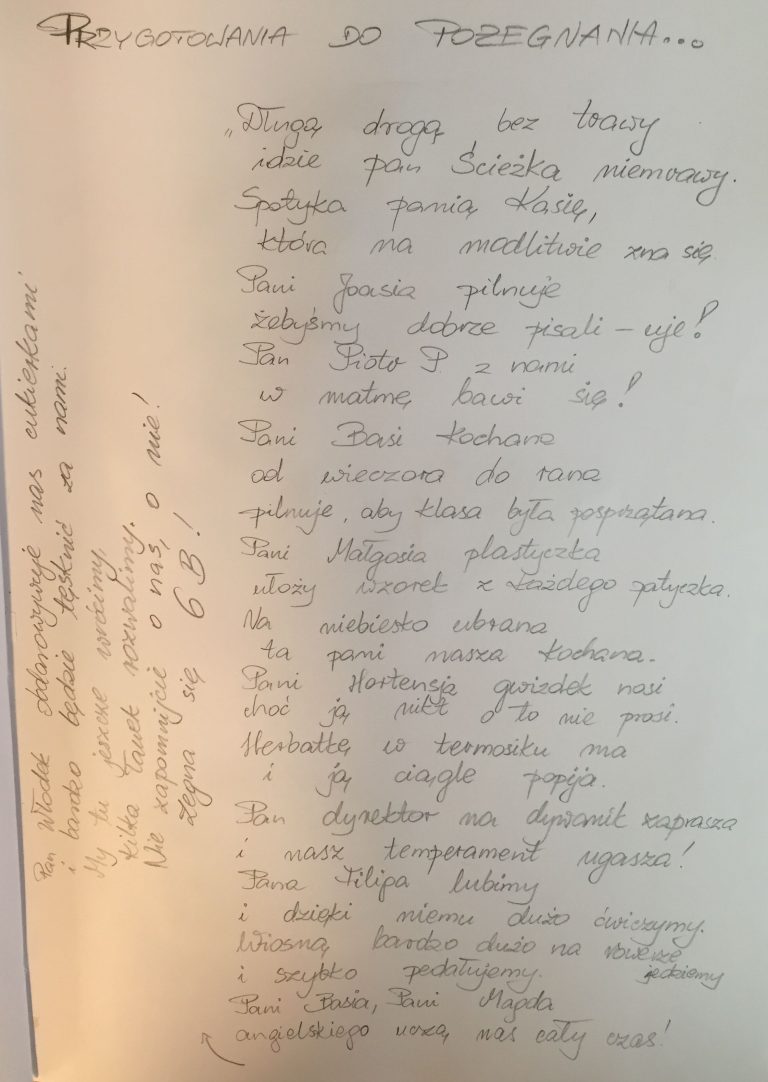 PRZYGOTOWANIA DO POŻEGNANIA...
„Długą drogą bez trawy
idzie pan Ścieżka niemrawy.
Spotyka panią Kasię,
która na modlitwie zna się
Pani Joasia pilnuje
żebyśmy dobrze pisali – uje!
Pan Piotr P. z nami
w matmę bawi się!
Pani Basi kochana
od wieczora do rana
pilnuje, aby klasa była posprzątana.
Pani Małgosia plastyczka
ułoży wzorek z każdego patyczka.
Na niebiesko ubrana
ta pani nasza kochana.
Pani Hortensja gwizdek nosi
choć ją nikt o to nie prosi.
Herbatkę w termosiku ma
i ją ciągle popija.
Pan dyrektor na dywanik zaprasza
i nasz temperament ugasza!
Pana Filipa lubimy
i dzięki niemu dużo ćwiczymy.
Wiosną bardzo dużo na rowerze jedziemy
i szybko pedałujemy.
Pani Basia, Pani Magda
angielskiego uczą nas cały czas!
Pan Włodek obdarowywuje nas cukierkami
i bardzo będzie tęsknić za nami.
My tu jeszcze wrócimy,
kilka ławek rozwalimy.
Nie zapomnijcie o nas, o nie!
Żegna się 6B!